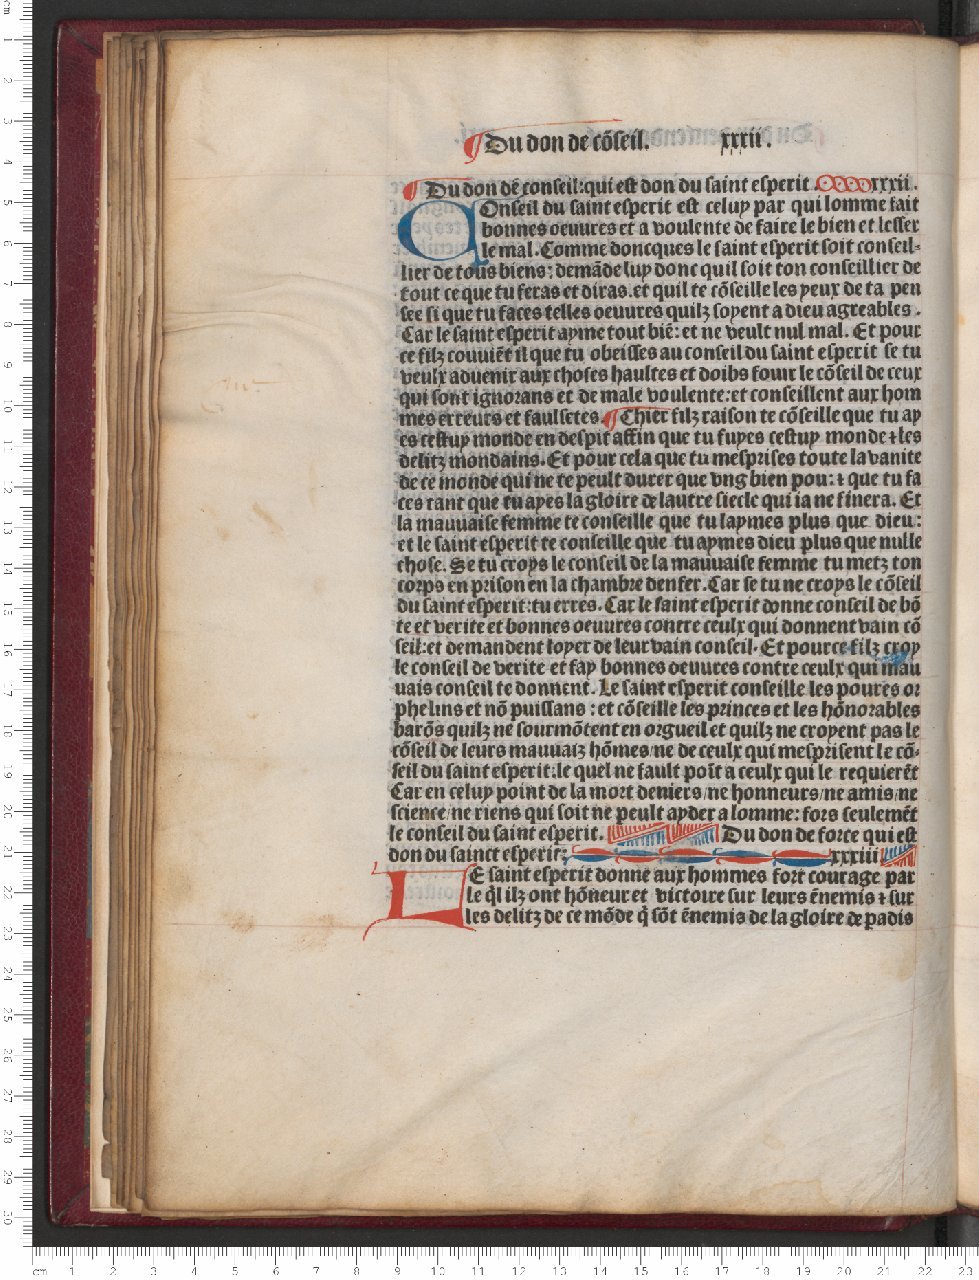 ¶Du don de cõseil. xxxii.
¶Du don de conseil:qui est don du saint esperit.xxxii.
COnseil du saint esperit est celuy par qui lomme fait
bonnes oeuures et a voulente de faire le bien et lesser
le mal. Comme doncques le saint esperit soit conseil-
lier de tous biens: demãde luy donc quil soit ton conseillier de
tout ce que tu feras et diras.et quil te cõseille les yeux de ta pen
see si que tu faces telles oeuures quilz soyent a dieu agreables.
Car le saint esperit ayme tout biẽ: et ne veult nul mal. Et pour
ce filz couuiẽt il que tu obeisses au conseil du saint esperit se tu
veulx aduenir aux choses haultes et doibs fouir le cõseil de ceux
qui sont ignorans et de male voulente:et conseillent aux hom
mes erreurs et faulsetes.¶Chier filz raison te cõseille que tu ay
es cestuy monde en despit affin que tu fuyes cestuy monde ⁊ les
delitz mondains. Et pour cela que tu mesprises toute la vanite
de ce monde qui ne te peult durer que vng bien pou: ⁊ que tu fa
ces tant que tu ayes la gloire de lautre siecle qui ia ne finera. Et
la mauuaise femme te conseille que tu laymes plus que dieu:
et le saint esperit te conseille que tu aymes dieu plus que nulle
chose. Se tu croys le conseil de la mauuaise femme tu metz ton
corps en prison en la chambre denfer. Car se tu ne croys le cõseil
du saint esperit:tu erres. Car le saint esperit donne conseil de bõ
te et verite et bonnes oeuures contre ceulx qui donnent vain cõ
seil:et demandent loyer de leur vain conseil. Et pource filz croy
le conseil de verite et fay bonnes oeuures contre ceulx qui mau
uais conseil te donnent. Le saint esperit conseille les poures or
phelins et nõ puissans : et cõseille les princes et les hõnorables
barõs quilz ne sourmõtent en orgueil et quilz ne croyent pas le
cõseil de leurs mauuaiz hõmes/ne de ceulx qui mesprisent le cõ-
seil du saint esperit:le quel ne fault poīt a ceulx qui le requierẽt
Car en celuy point de la mort deniers/ne honneurs/ne amis/ne
science/ne riens qui soit ne peult ayder a lomme: fors seulemẽt
le conseil du saint esperit. Du don de force qui est
don du sainct esperit: xxxiii
LE saint esperit donne aux hommes fort courage par
le q̃l ilz ont hõneur et victoire sur leurs ẽnemis ⁊ sur
les delitz de ce mõde q̃ sõt ẽnemis de la gloire de padis